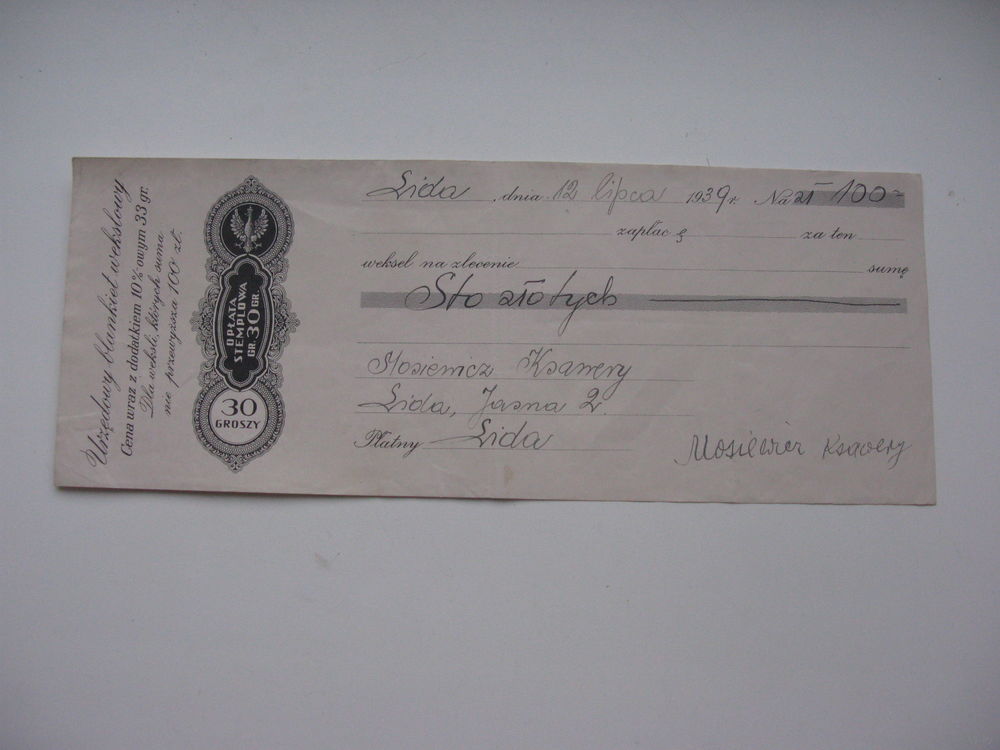 Urzędowy blankiet wekslowy
Cena wraz z dodatkiem 10%owym 33 gr.
Dla weksli, których suma
nie przewyższa 100 zł.
OPŁATA
STEMPLOWA
GR. 30 GR.
30
GROSZY
Lida, dnia 12 lipca 1939 r. Na zł 100
zapłac ę za ten
weksel na zlecenie sumę
Sto złotych
Mosiewicz Ksawery
Lida, Jasna 2.
Płatny Lida
Mosiewicz Ksawery